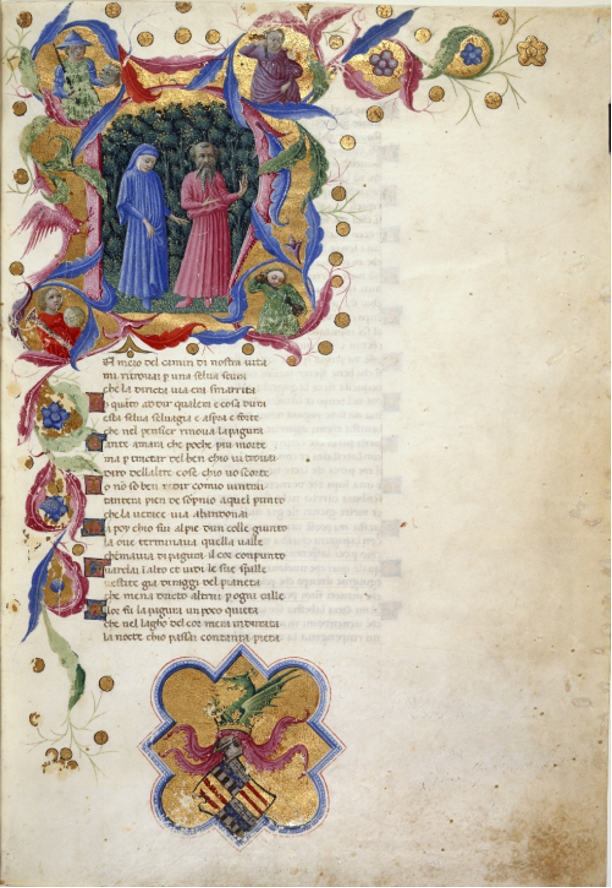 NEl mezo del camin di nostra uita
mi ritrouai p una selua scura
che la diricta uia era smarrita
E quāto ad dir qualera e cosa dura
esta selua seluagia e aspra e forte
che nel pensier rinoua la pagura
Tante amara che poche piu morte
ma p tractar del ben chio ui trouai
diro dellaltre cose chio uo scorte
Io no so ben redir comio uintrai
tantera pien de sopnio aquel punto
che la verace uia abandonai
Ma poy chio fui alpie dun colle giunto
la oue terminaua quella ualle
chemauia di pagura il cor conpunto
Guardai ī alto et uidi le sue spalle
uestite gia di raggi del pianeta
che mena dricto altrui p ogni calle
Allor fu la pagura un poco quieta
che nel lagho del cor mera indurata
la nocte chio passai contanta pieta